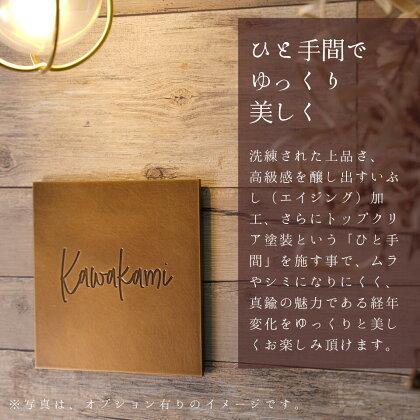 ひと手間で
ゆっくり
美しく
洗練された上品さ、
高級感を醸し出すいぶ
し（エイジング）加
工、さらにトップクリ
ア塗装という「ひと手
間」を施す事で、ムラ
やシミになりにくく、
真鍮の魅力である経年
変化をゆっくりと美し
くお楽しみ頂けます。
Kawakami
※写真は、オプション有りのイメージです。